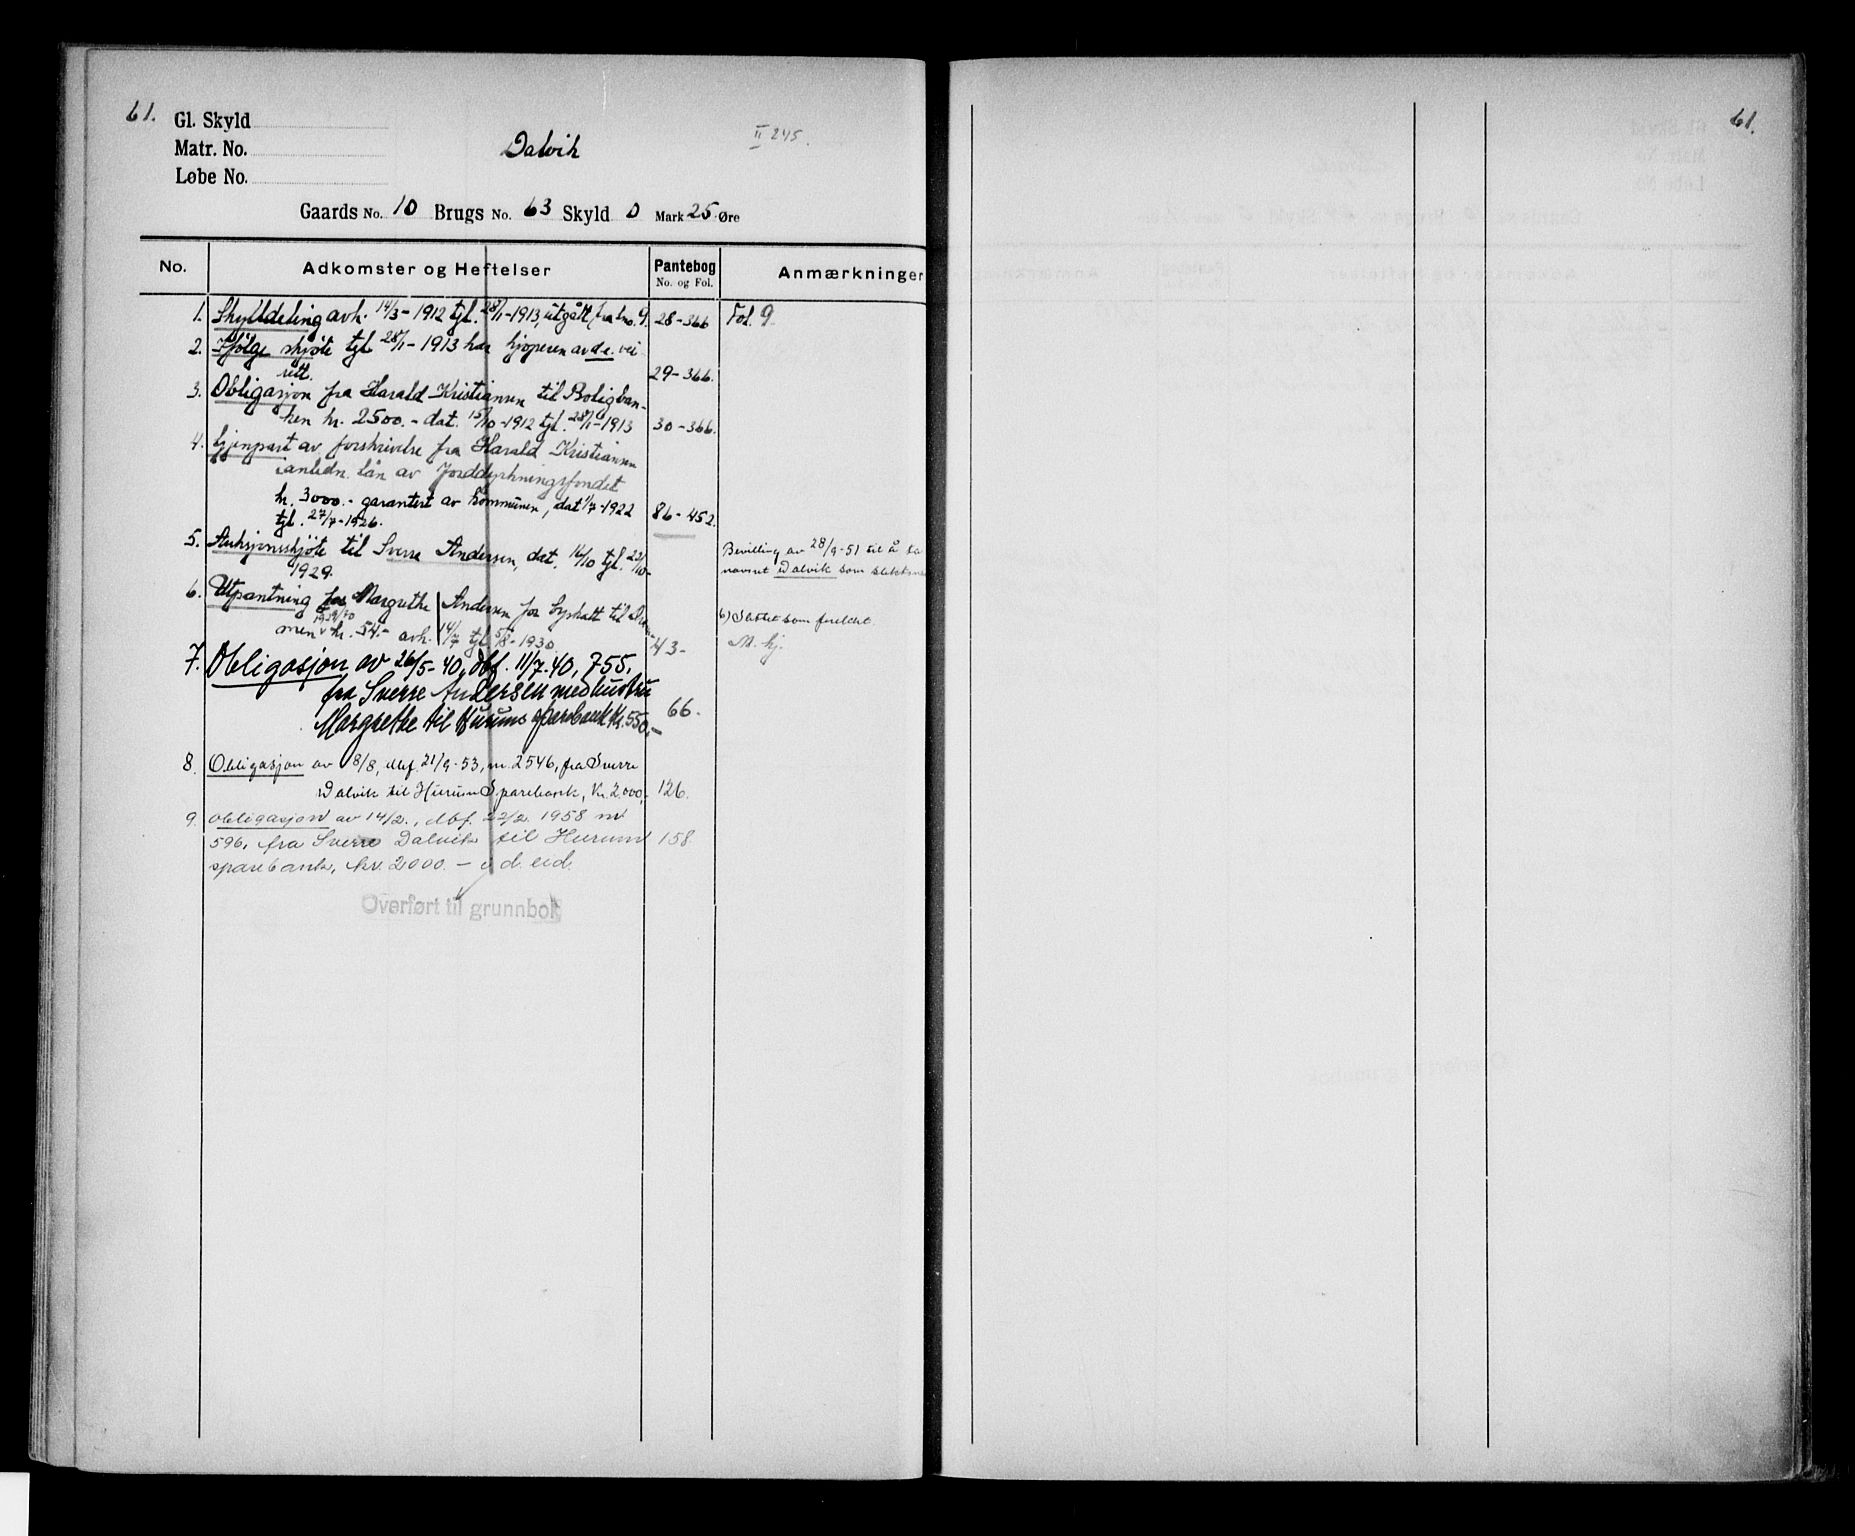 61.
Gl. Skyld
Matr. No.
Løbe No.
Dalvik
II 245.
Gaards No. 10 Brugs No. 63 Skyld 0 Mark 25 Øre
No. Adkomster og Heftelser Pantebog No. og Fol. Anmærkninger
1. Skylddeling avh. 14/3-1912 tgl. 28/1-1913, utgått fra bno. 9. 28-366 Fol. 9.
2. Ifølge skjøte tgl 28/1-1913 har kjøperen av d.e. vei
rett. 29-366.
3. Obligasjon fra Harald Kristiansen til Boligban-
ken kr. 2500.- dat. 15/10-1912 tgl. 28/1-1913 30-366.
4. Gjenpart av forskrivelse fra Harald Kristiansen
i anledn. lån av Jorddyrkningsfondet
kr. 3000.- garantert av kommunen, dat 1/7-1922 86-452.
tgl. 27/7-1926.
5. Auksjonsskjøte til Sverre Andersen, dat. 16/10 tgl. 22/10-
1929.
Bevilling av 28/9-51 til å ta
navnet Dalvik som slektsn
6. Utpantning hos Margrethe Andersen for byskatt til Dram-
men 1929/30 kr. 54.- avh. 14/7 tgl 5/8-1930. 43-
6) Slettet som foreldet.
M. Hj.
7. Obligasjon av 26/5-40, dbf. 11/7-40, 755,
fra Sverre Andersen med hustru
Margrethe til Hurums sparebank Kr. 550,- 66.
8. Obligasjon av 18/8, dbf. 21/9-53, nr. 2546, fra Sverre
Dalvik til Hurum Sparebank, Kr. 2.000,- 126.
9. Obligasjon av 14/2., dbf. 22/2. 1958 nr
596, fra Sverre Dalvik til Hurum 158
sparebank, kr. 2000.-
Overført til grunnbok
61.